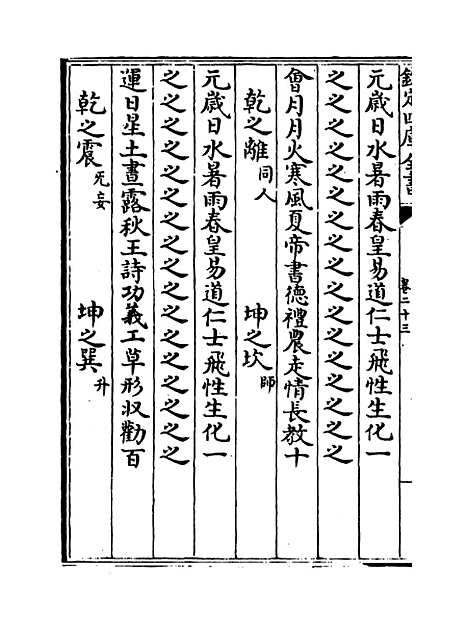 欽定四庫全書 卷二十三
元歲日水暑雨春皇易道仁士飛性生化一
之之之之之之之之之之之之之之之之之
會月月火寒風夏帝書德禮農走情長教十
乾之離同人 坤之坎師
元歲日水暑雨春皇易道仁士飛性生化一
之之之之之之之之之之之之之之之之之
運日星土晝露秋王詩功義工草形収勸百
乾之震旡妄 坤之巽升